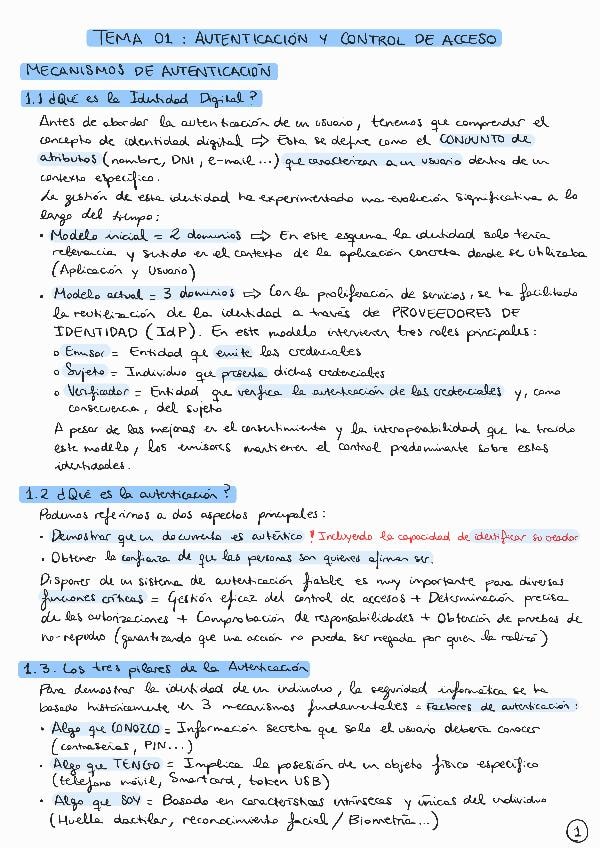 TEMA 01 : AUTENTICACIÓN Y CONTROL DE ACCESO
MECANISMOS DE AUTENTICACIÓN
1.1 ¿Qué es la Identidad Digital?
Antes de abordar la autenticación de un usuario, tenemos que comprender el
concepto de identidad digital ⇨ Esta se define como el CONJUNTO DE
atributos (nombre, DNI, e-mail ...) que caracterizan a un usuario dentro de un
contexto específico.
La gestión de esta identidad ha experimentado una evolución significativa a lo
largo del tiempo:
• Modelo inicial = 2 dominios ⇨ En este esquema la identidad solo tenía
relevancia y sentido en el contexto de la aplicación concreta donde se utilizaba
(Aplicación y Usuario)
• Modelo actual = 3 dominios ⇨ Con la proliferación de servicios, se ha facilitado
la reutilización de la identidad a través de PROVEEDORES DE
IDENTIDAD (IdP). En este modelo intervienen tres roles principales:
o Emisor = Entidad que emite las credenciales
o Sujeto = Individuo que presenta dichas credenciales
o Verificador = Entidad que verifica la autenticación de las credenciales y, como
consecuencia, del sujeto
A pesar de las mejoras en el consentimiento y la interoperabilidad que ha traído
este modelo, los emisores mantienen el control predominante sobre estas
identidades.
1.2 ¿Qué es la autenticación?
Podemos referirnos a dos aspectos principales:
• Demostrar que un documento es auténtico ! Incluyendo la capacidad de identificar su creador
• Obtener la confianza de que las personas son quienes afirman ser.
Disponer de un sistema de autenticación fiable es muy importante para diversas
funciones críticas = Gestión eficaz del control de accesos + Determinación precisa
de las autorizaciones + Comprobación de responsabilidades + Obtención de pruebas de
no-repudio (garantizando que una acción no pueda ser negada por quien la realizó)
1.3. Los tres pilares de la Autenticación
Para demostrar la identidad de un individuo, la seguridad informática se ha
basado históricamente en 3 mecanismos fundamentales = Factores de autenticación:
• Algo que CONOZCO = Información secreta que solo el usuario debería conocer
(contraseñas, PIN...)
• Algo que TENGO = Implica la posesión de un objeto físico específico
(teléfono móvil, Smartcard, token USB)
• Algo que SOY = Basado en características intrínsecas y únicas del individuo
(Huella dactilar, reconocimiento facial / Biometría...)
1